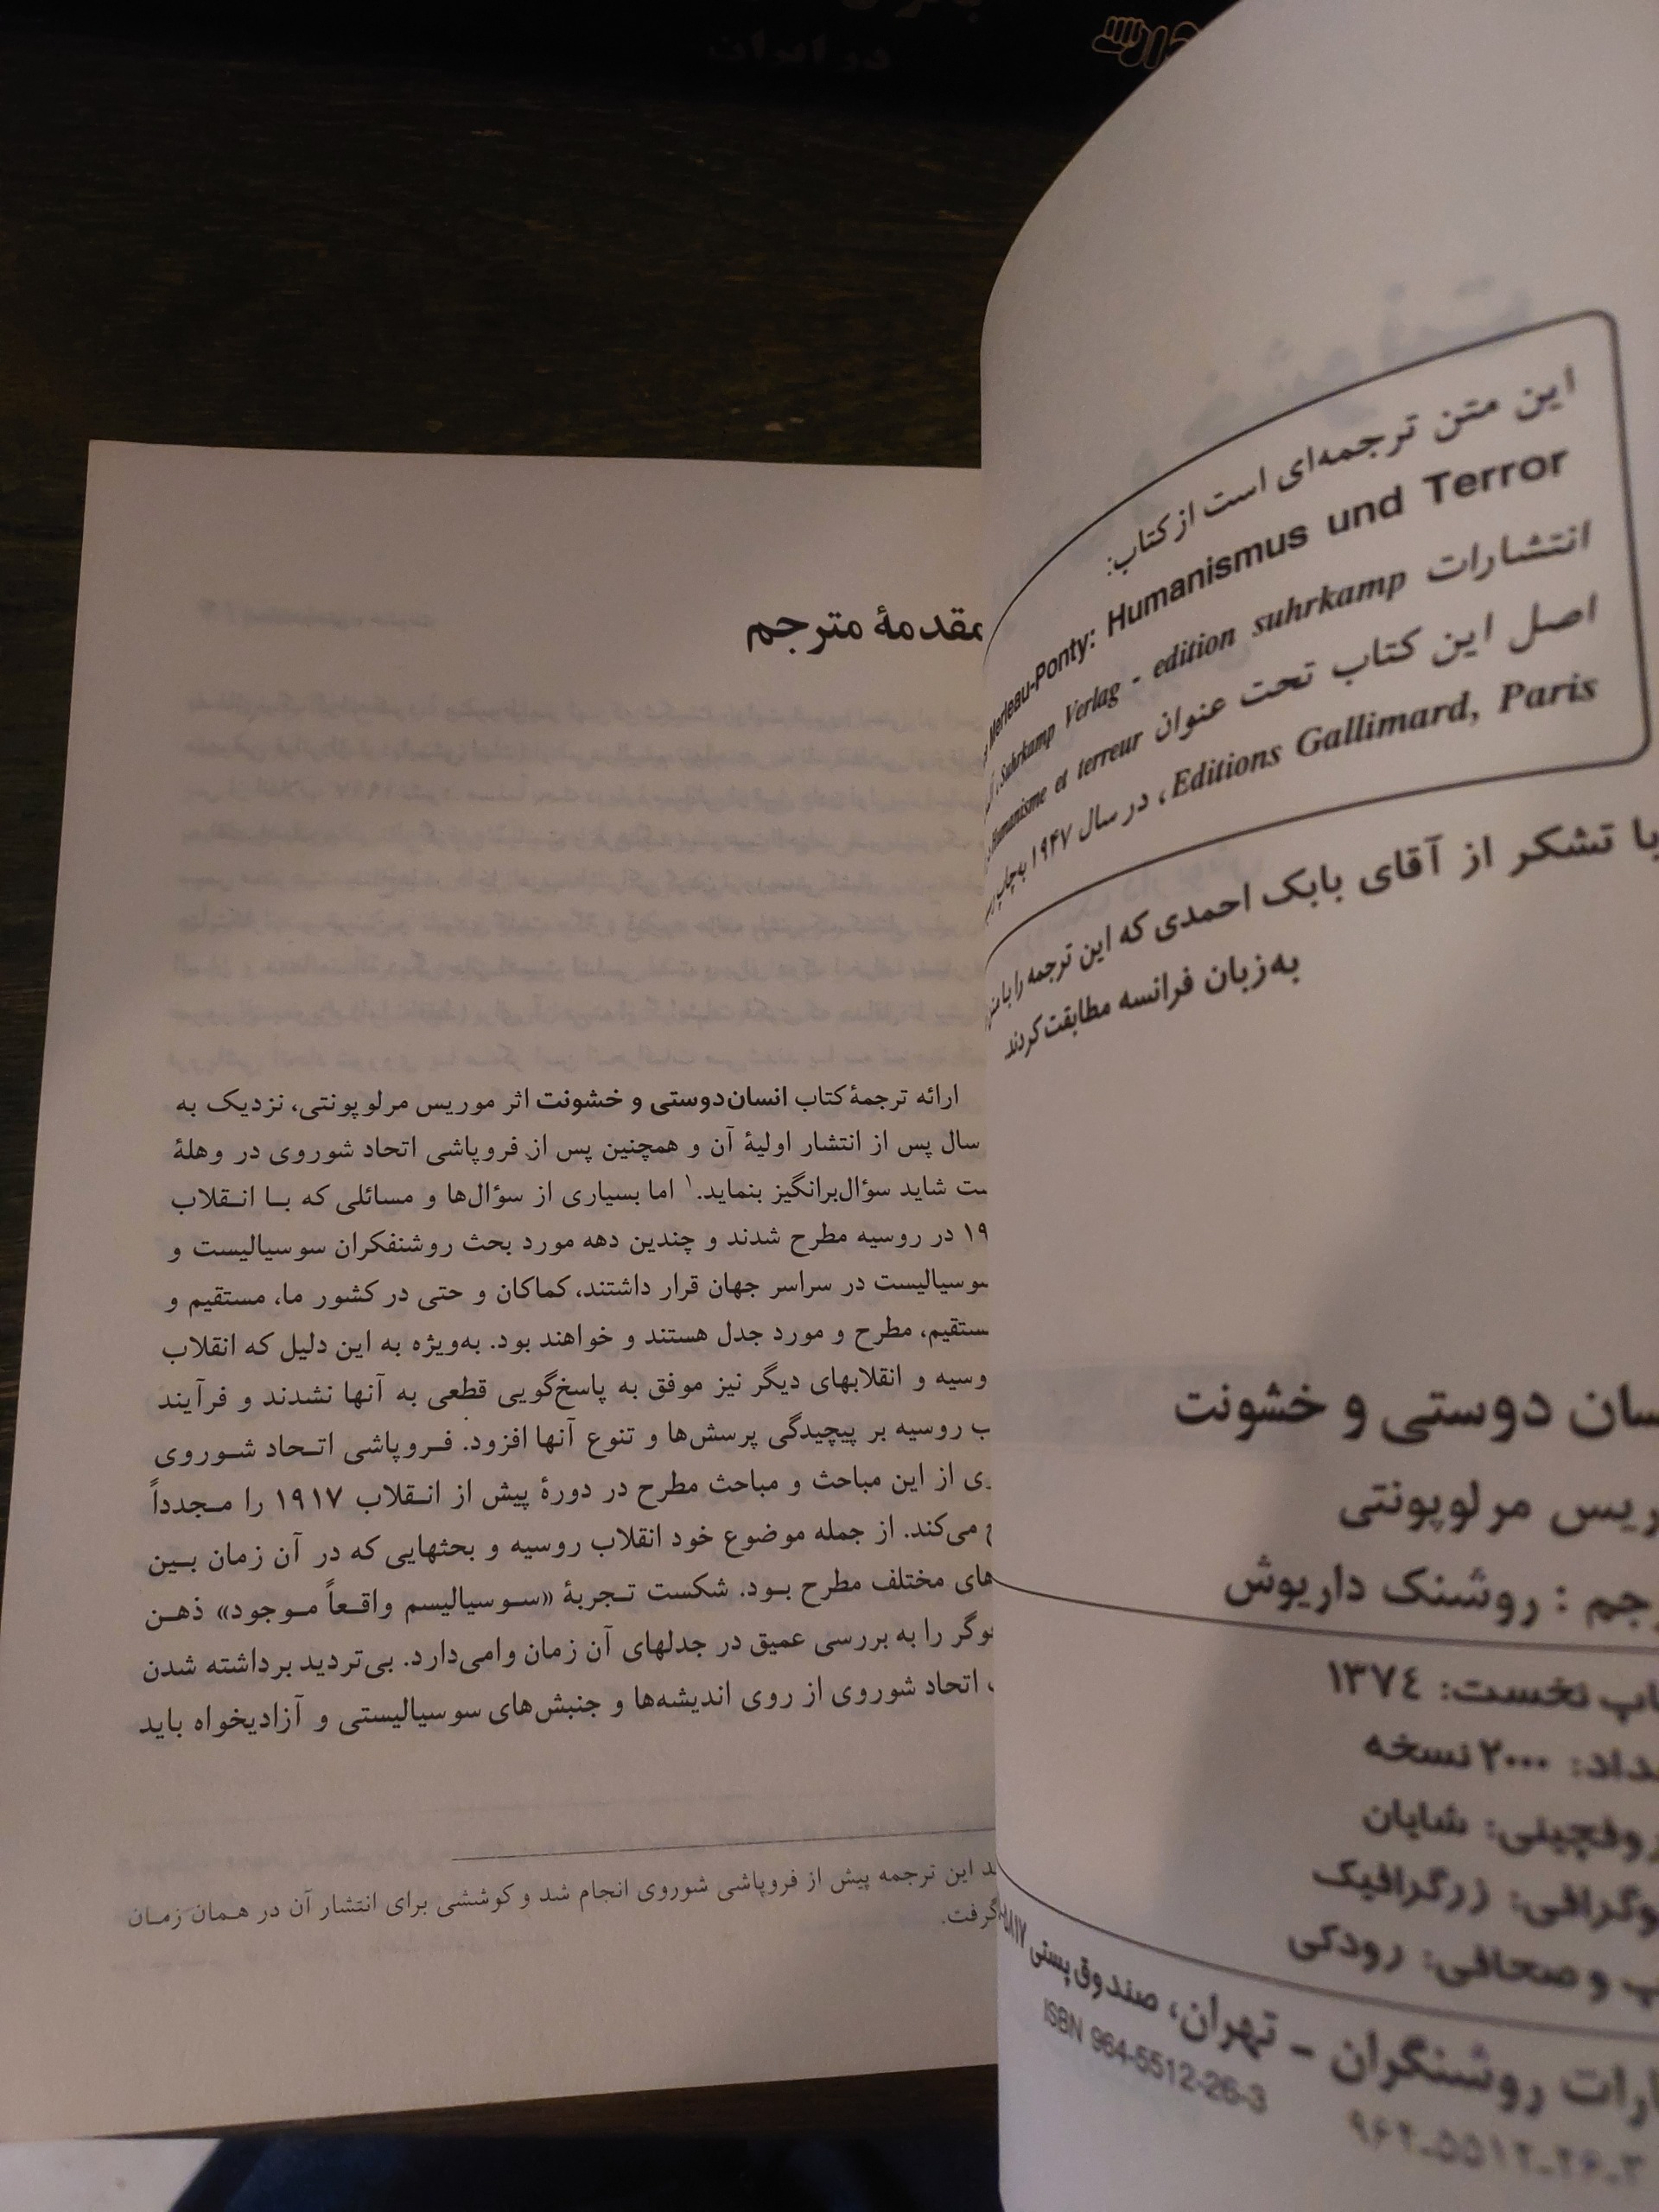 در ایران
این متن ترجمه‌ای است از کتاب:
Merleau-Ponty: Humanismus und Terror
انتشارات Suhrkamp Verlag - edition suhrkamp
اصل این کتاب تحت عنوان Humanisme et terreur
Editions Gallimard, Paris، در سال ۱۹۴۷ به‌چاپ
با تشکر از آقای بابک احمدی که این ترجمه را با
به‌زبان فرانسه مطابقت کردند
سان دوستی و خشونت
ریس مرلوپونتی
جم : روشنک داریوش
اپ نخست: ۱۳۷٤
داد: ۲۰۰۰ نسخه
روفچینی: شایان
وگرافی: زرگرافیک
پ و صحافی: رودکی
ارات روشنگران - تهران، صندوق پستی ۵۸۱۷
ISBN 964-5512-26-3
۹۶۴-۵۵۱۲-۲۶-۳
مقدمهٔ مترجم
ارائه ترجمهٔ کتاب انسان‌دوستی و خشونت اثر موریس مرلوپونتی، نزدیک به
سال پس از انتشار اولیهٔ آن و همچنین پس از فروپاشی اتحاد شوروی در وهلهٔ
ست شاید سؤال‌برانگیز بنماید.۱ اما بسیاری از سؤال‌ها و مسائلی که بـا انـقلاب
۱۹ در روسیه مطرح شدند و چندین دهه مورد بحث روشنفکران سوسیالیست و
سوسیالیست در سراسر جهان قرار داشتند، کماکان و حتی در کشور ما، مستقیم و
ستقیم، مطرح و مورد جدل هستند و خواهند بود. به‌ویژه به این دلیل که انقلاب
وسیه و انقلابهای دیگر نیز موفق به پاسخ‌گویی قطعی به آنها نشدند و فرآیند
ب روسیه بر پیچیدگی پرسش‌ها و تنوع آنها افزود. فـروپاشی اتـحاد شـوروی
ری از این مباحث و مباحث مطرح در دورهٔ پیش از انـقلاب ۱۹۱۷ را مـجدداً
ح می‌کند. از جمله موضوع خود انقلاب روسیه و بحثهایی که در آن زمان بـین
های مختلف مطرح بـود. شکست تـجربهٔ «سـوسیالیسم واقـعاً مـوجود» ذهـن
جوگر را به بررسی عمیق در جدلهای آن زمان وامی‌دارد. بی‌تردید برداشته شدن
اتحاد شوروی از روی اندیشه‌ها و جنبش‌های سوسیالیستی و آزادیخواه باید
ـد این ترجمه پیش از فروپاشی شوروی انجام شد و کوششی برای انتشار آن در هـمان زمـان
گرفت.